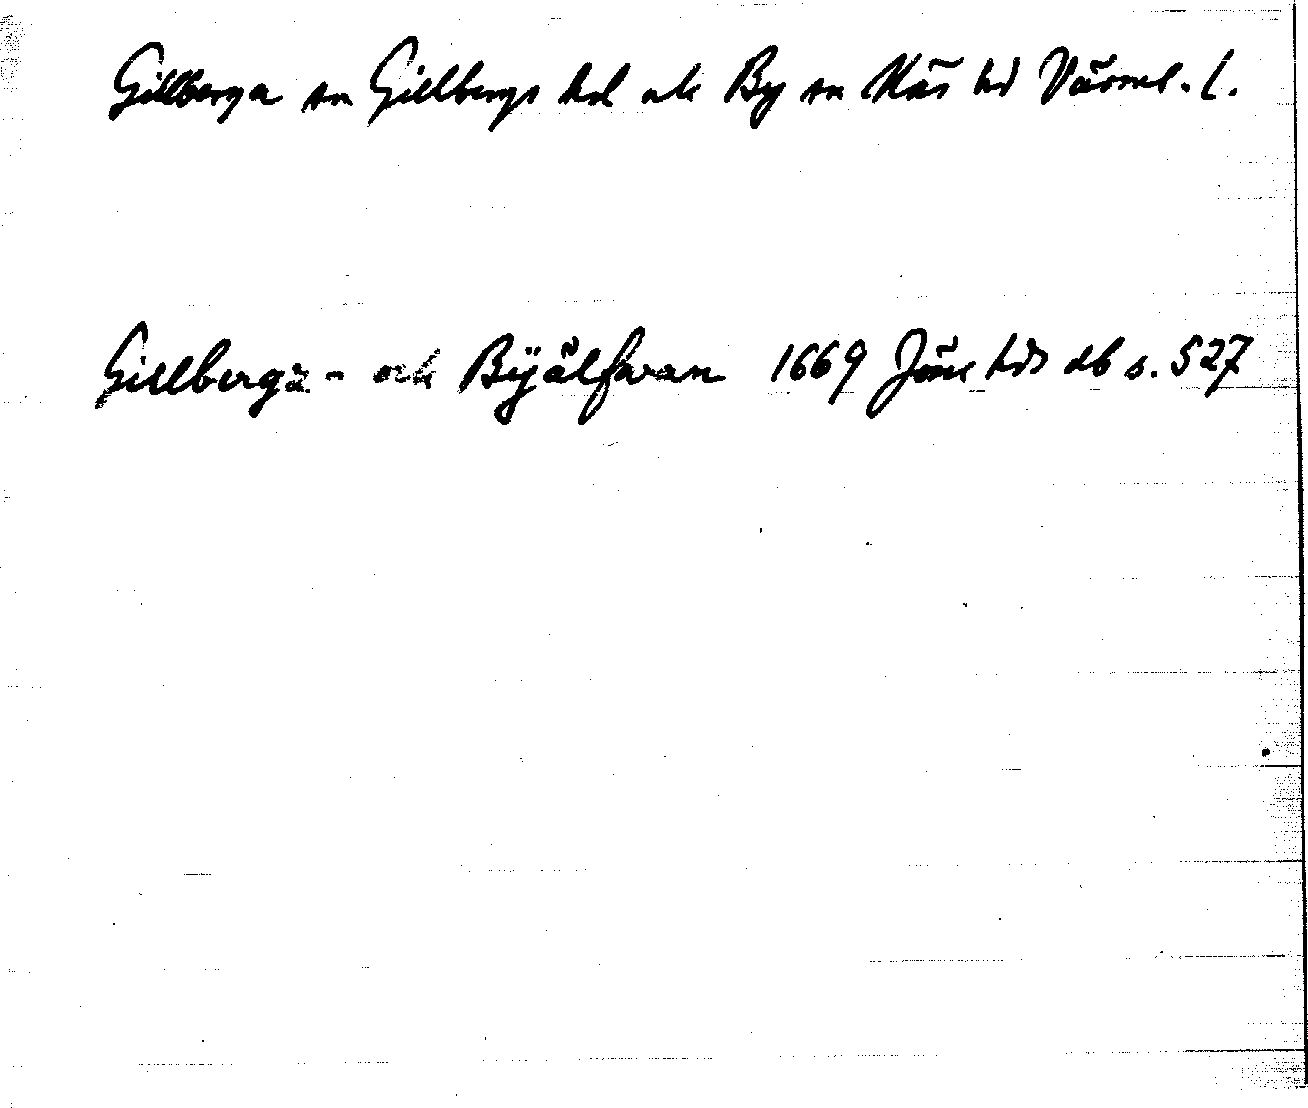 Gillberga sn Gillbergs hd och By sn Näs hd Värml. l.
Gillberga - och Bÿälfwan 1669 Jöse hds db s. 527